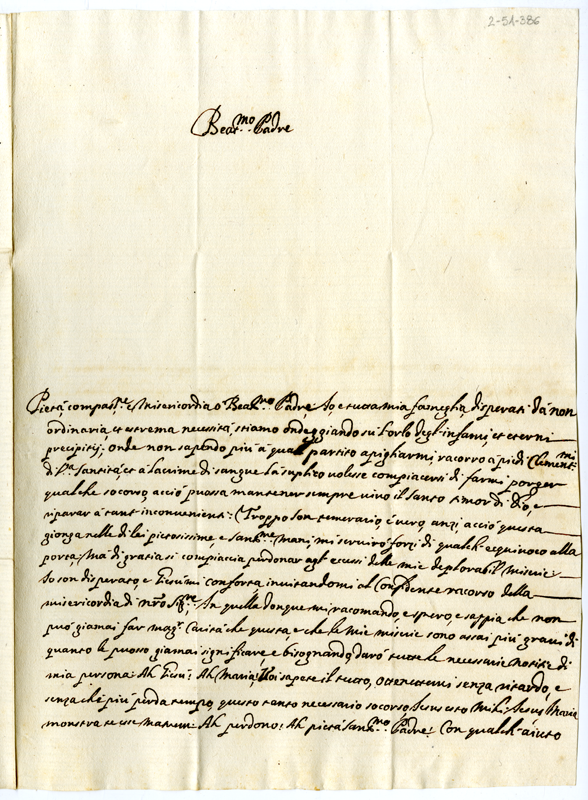 2-51-386
Beat.mo Padre
Pietà, compas.ne, e Misericordia o Beat.mo Padre. Io, e tutta mia famiglia disperati dà non
ordinaria, et estrema necessità, stiamo ondeggiando sù l'orlo degl'infami, et eterni
precipitij; onde non sapendo più à qual partito apigliarmi, racorro a piedi Clement.mi
di V.a Santità, et à lacrime di sangue la suplico volesse compiacersi di farmi porger
qualche socorso, acciò puossa mantener sempre vivo il santo timor di Dio, e
riparar à tant'inconvenienti. Troppo son temerario, è vero, anzi, acciò questa
gionga nelle di lei pietosissime e sant.me mani, mi servirò forzi di qualch'equivoco alla
porta; Mà di gratia si compiaccia perdonar agl'ecessi delle mie deplorabili miserie.
Io son disperato, e Giesù mi conforta invitandomi al Confidente racorso della
misericordia di nro Sig.re. In quella donque mi racomando, e spero, e sappia che non
può giamai far mag.r Carità che questa, e che le mie miserie sono assai più gravi di
quanto le puosso giamai significare, e bisognando, darò tutte le necessarie notitie di
mia persona. Ah Giesù! Ah Maria! Voi sapete il tutto, ottenetemi senza ritardo, e
senza che più perda tempo, questo tanto necessario socorso. Jesus esto Mihi Jesus. Maria
monstra te esse Matrem. Ah perdono! Ah pietà Sant.mo Padre! Con qualch'aiuto